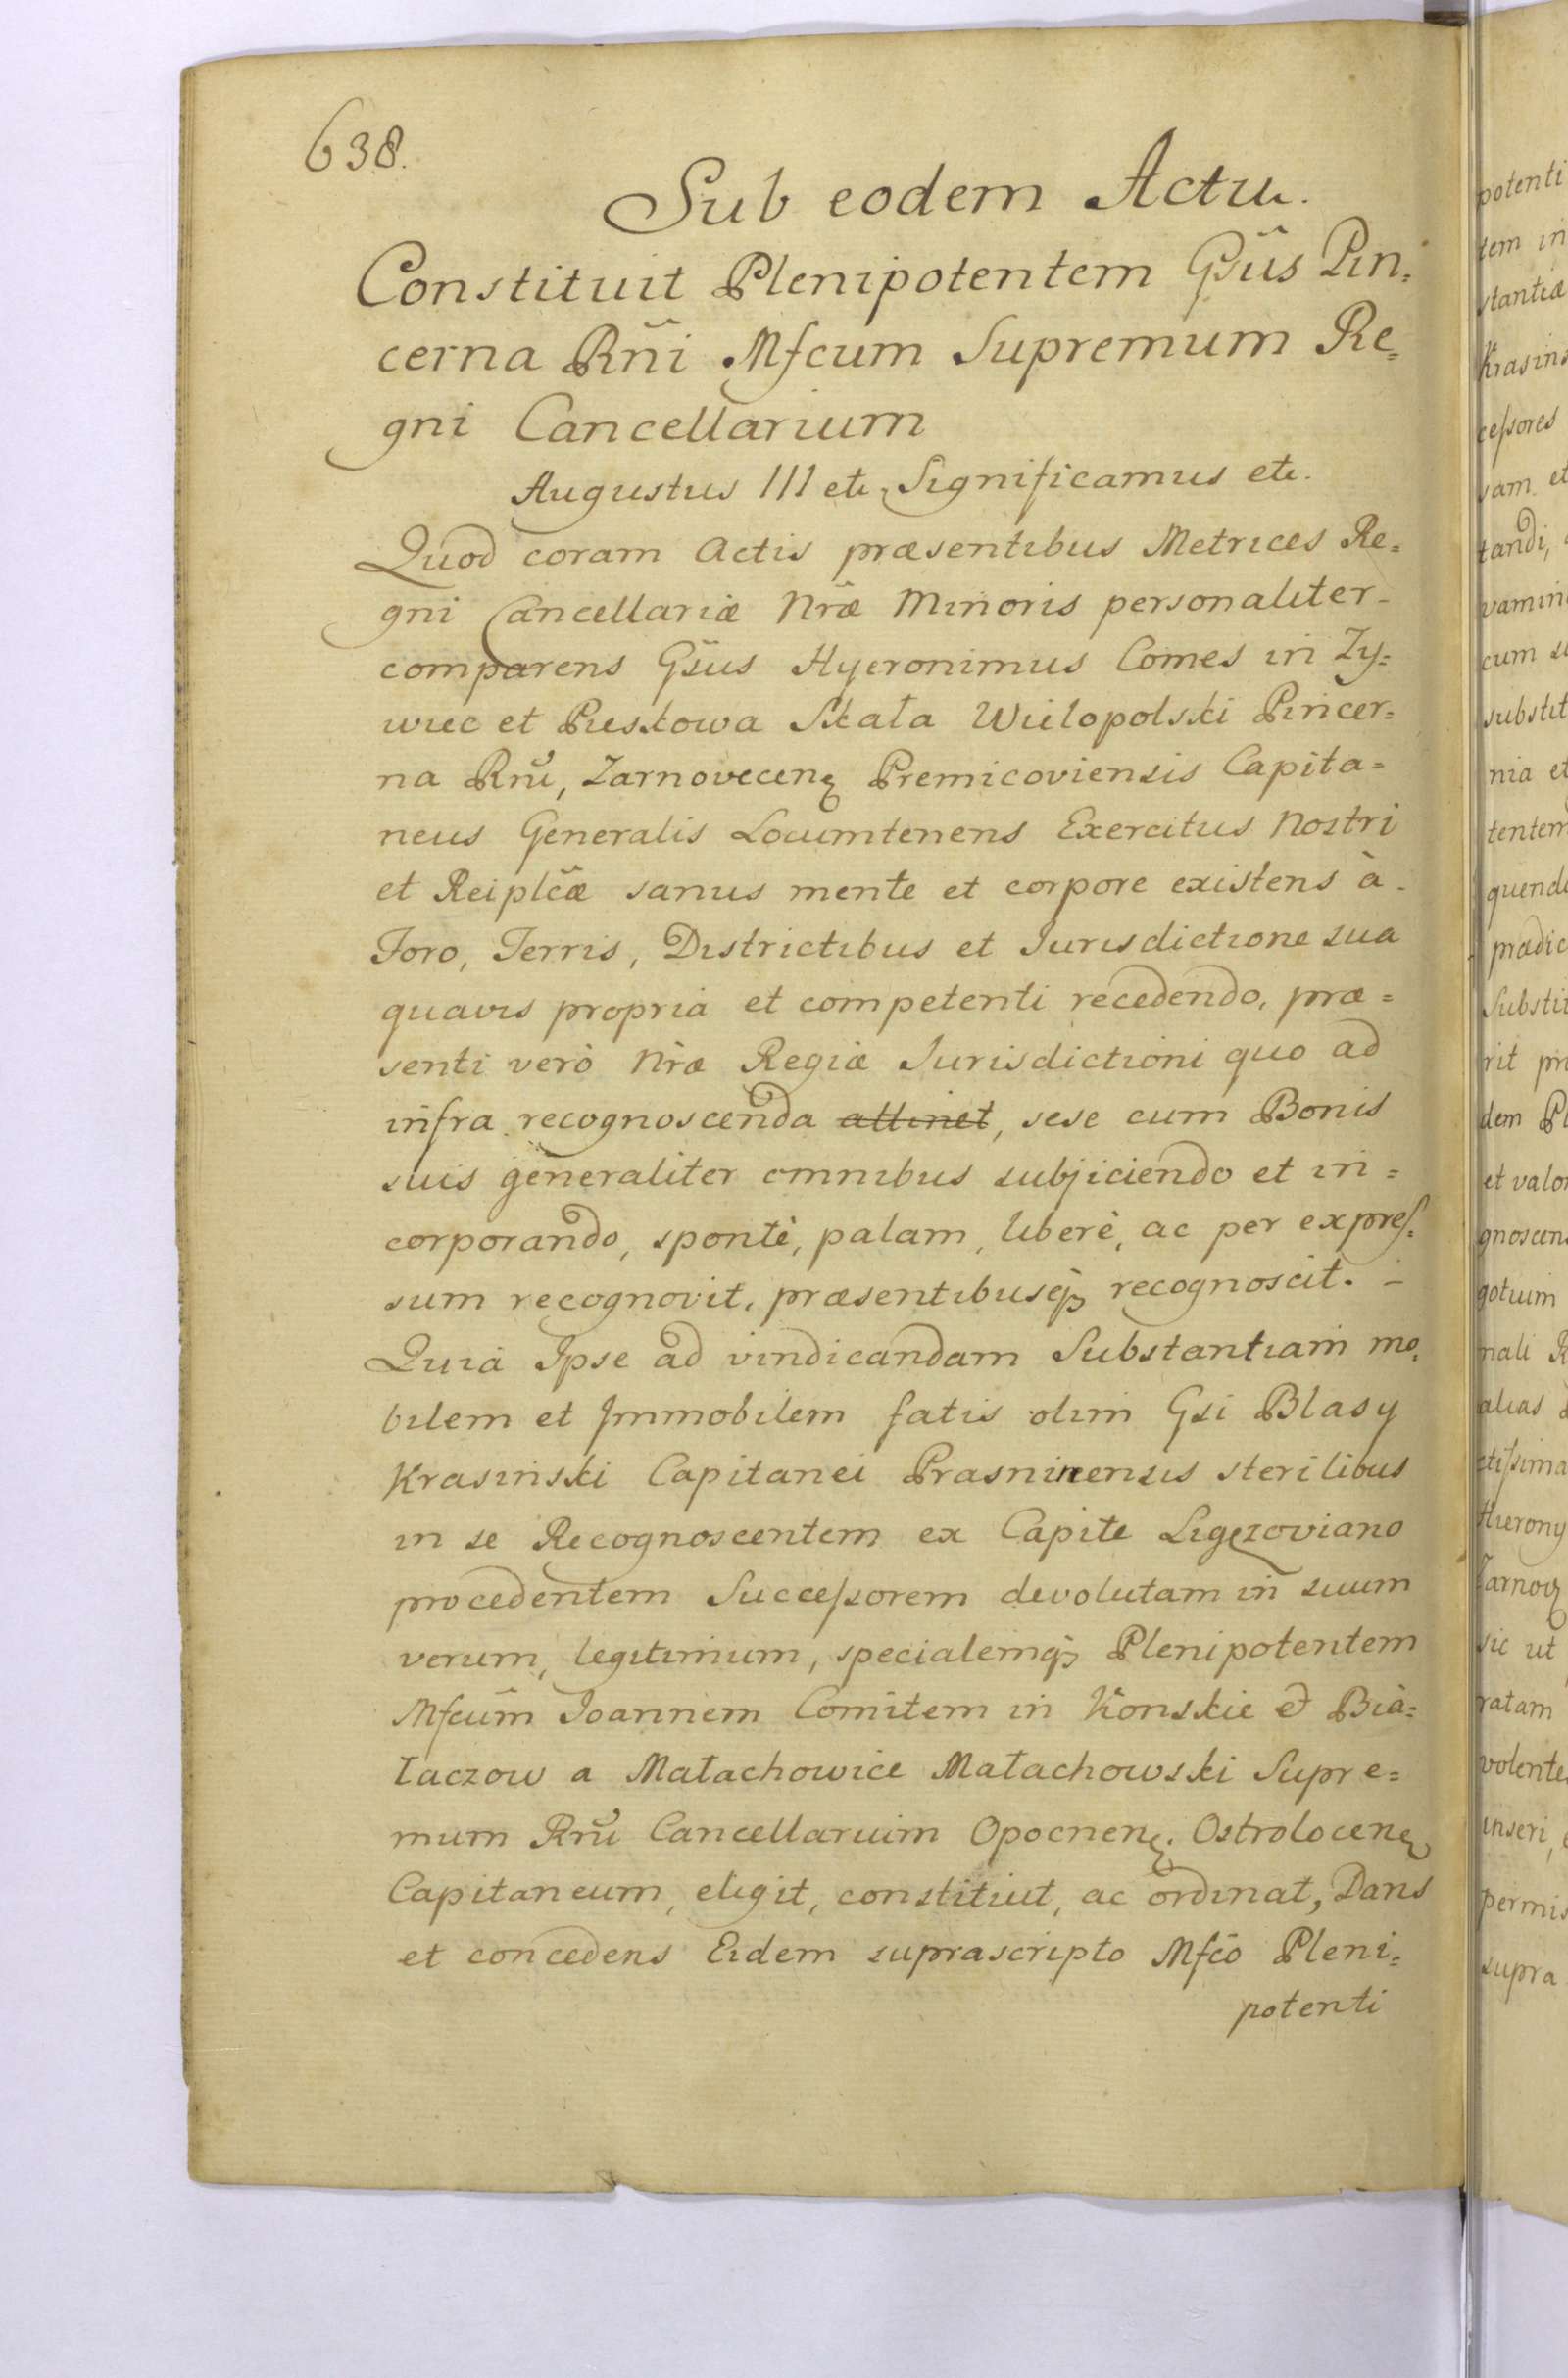 638.
Sub eodem Actu.
Constituit Plenipotentem Gsũs Pin=
cerna Rñi Mfcum Supremum Re=
gni Cancellarium
Augustus III etc. Significamus etc.
Quod coram Actis præsentibus Metrices Re=
gni Cancellariæ Nrãe Minoris personaliter
comparens Gsũs Hyeronimus Comes in Zy=
wiec et Pieskowa Skała Wielopolski Pincer=
na Rñi, Zarnovecen. Premicoviensis Capita=
neus Generalis Locumtenens Exercitus Nostri
et Reiplcæ sanus mente et corpore existens à
Foro, Terris, Districtibus et Jurisdictione sua
quavis propria et competenti recedendo, præ=
senti verò Nræ Regiæ Jurisdictioni quo ad
infra recognoscenda attinet, sese cum Bonis
suis generaliter omnibus subjiciendo et in=
corporando, spontè, palam, liberè, ac per expres=
sum recognovit, præsentibusq; recognoscit. -
Quia Ipse ad vindicandam Substantiam mo=
bilem et Immobilem fatis olim Gsi Blasy
Krasinski Capitanei Prasninensis sterilibus
in se Recognoscentem ex Capite Ligęzoviano
procedentem Successorem devolutam in suum
verum, legitimum, specialemq; Plenipotentem
Mfcũm Joannem Comitem in Konskie et Bia=
łaczow a Małachowice Małachowski Supre=
mum Rñi Cancellarium Opocnen. Ostrolocen.
Capitaneum, eligit, constituit, ac ordinat, Dans
et concedens Eidem suprascripto Mfco Pleni=
potenti
potenti
tem in
stantiæ
Krasins
cessores
vam et
tandi,
vamin
cum su
substit
nia et
tentem
quend
prædic
Substit
rit pr
dem Pl
et valo
gnoscen
gotium
nali R
alias
ctissima
Hierony
Zarnov
sic ut
ratam
volente
inseri,
permis
supra